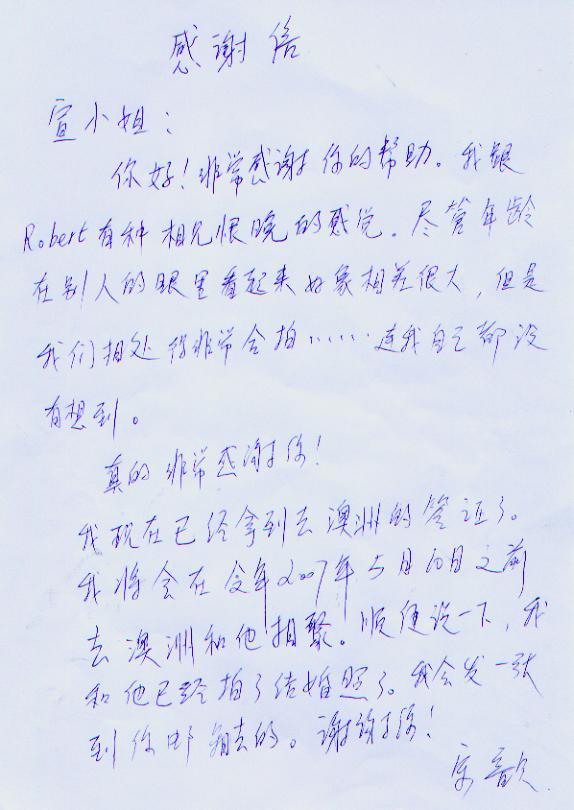 感谢信
宣小姐：
你好！非常感谢你的帮助。我跟
Robert有种相见恨晚的感觉。尽管年龄
在别人的眼里看起来好象相差很大，但是
我们相处得非常合拍……连我自己都没
有想到。
真的非常感谢你！
我现在已经拿到去澳洲的签证了。
我将会在今年2007年5月10日之前
去澳洲和他相聚。顺便说一下，我
和他已经拍了结婚照了。我会发一张
到你那 去的。谢谢你！